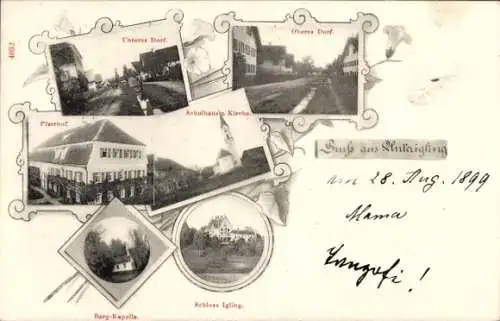 4682
Unteres Dorf.
Oberes Dorf.
Pfarrhof.
Schulhaus u. Kirche.
Gruß aus Unterigling
am 28. Aug. 1899
Mama
Burg-Kapelle.
Schloss Igling.